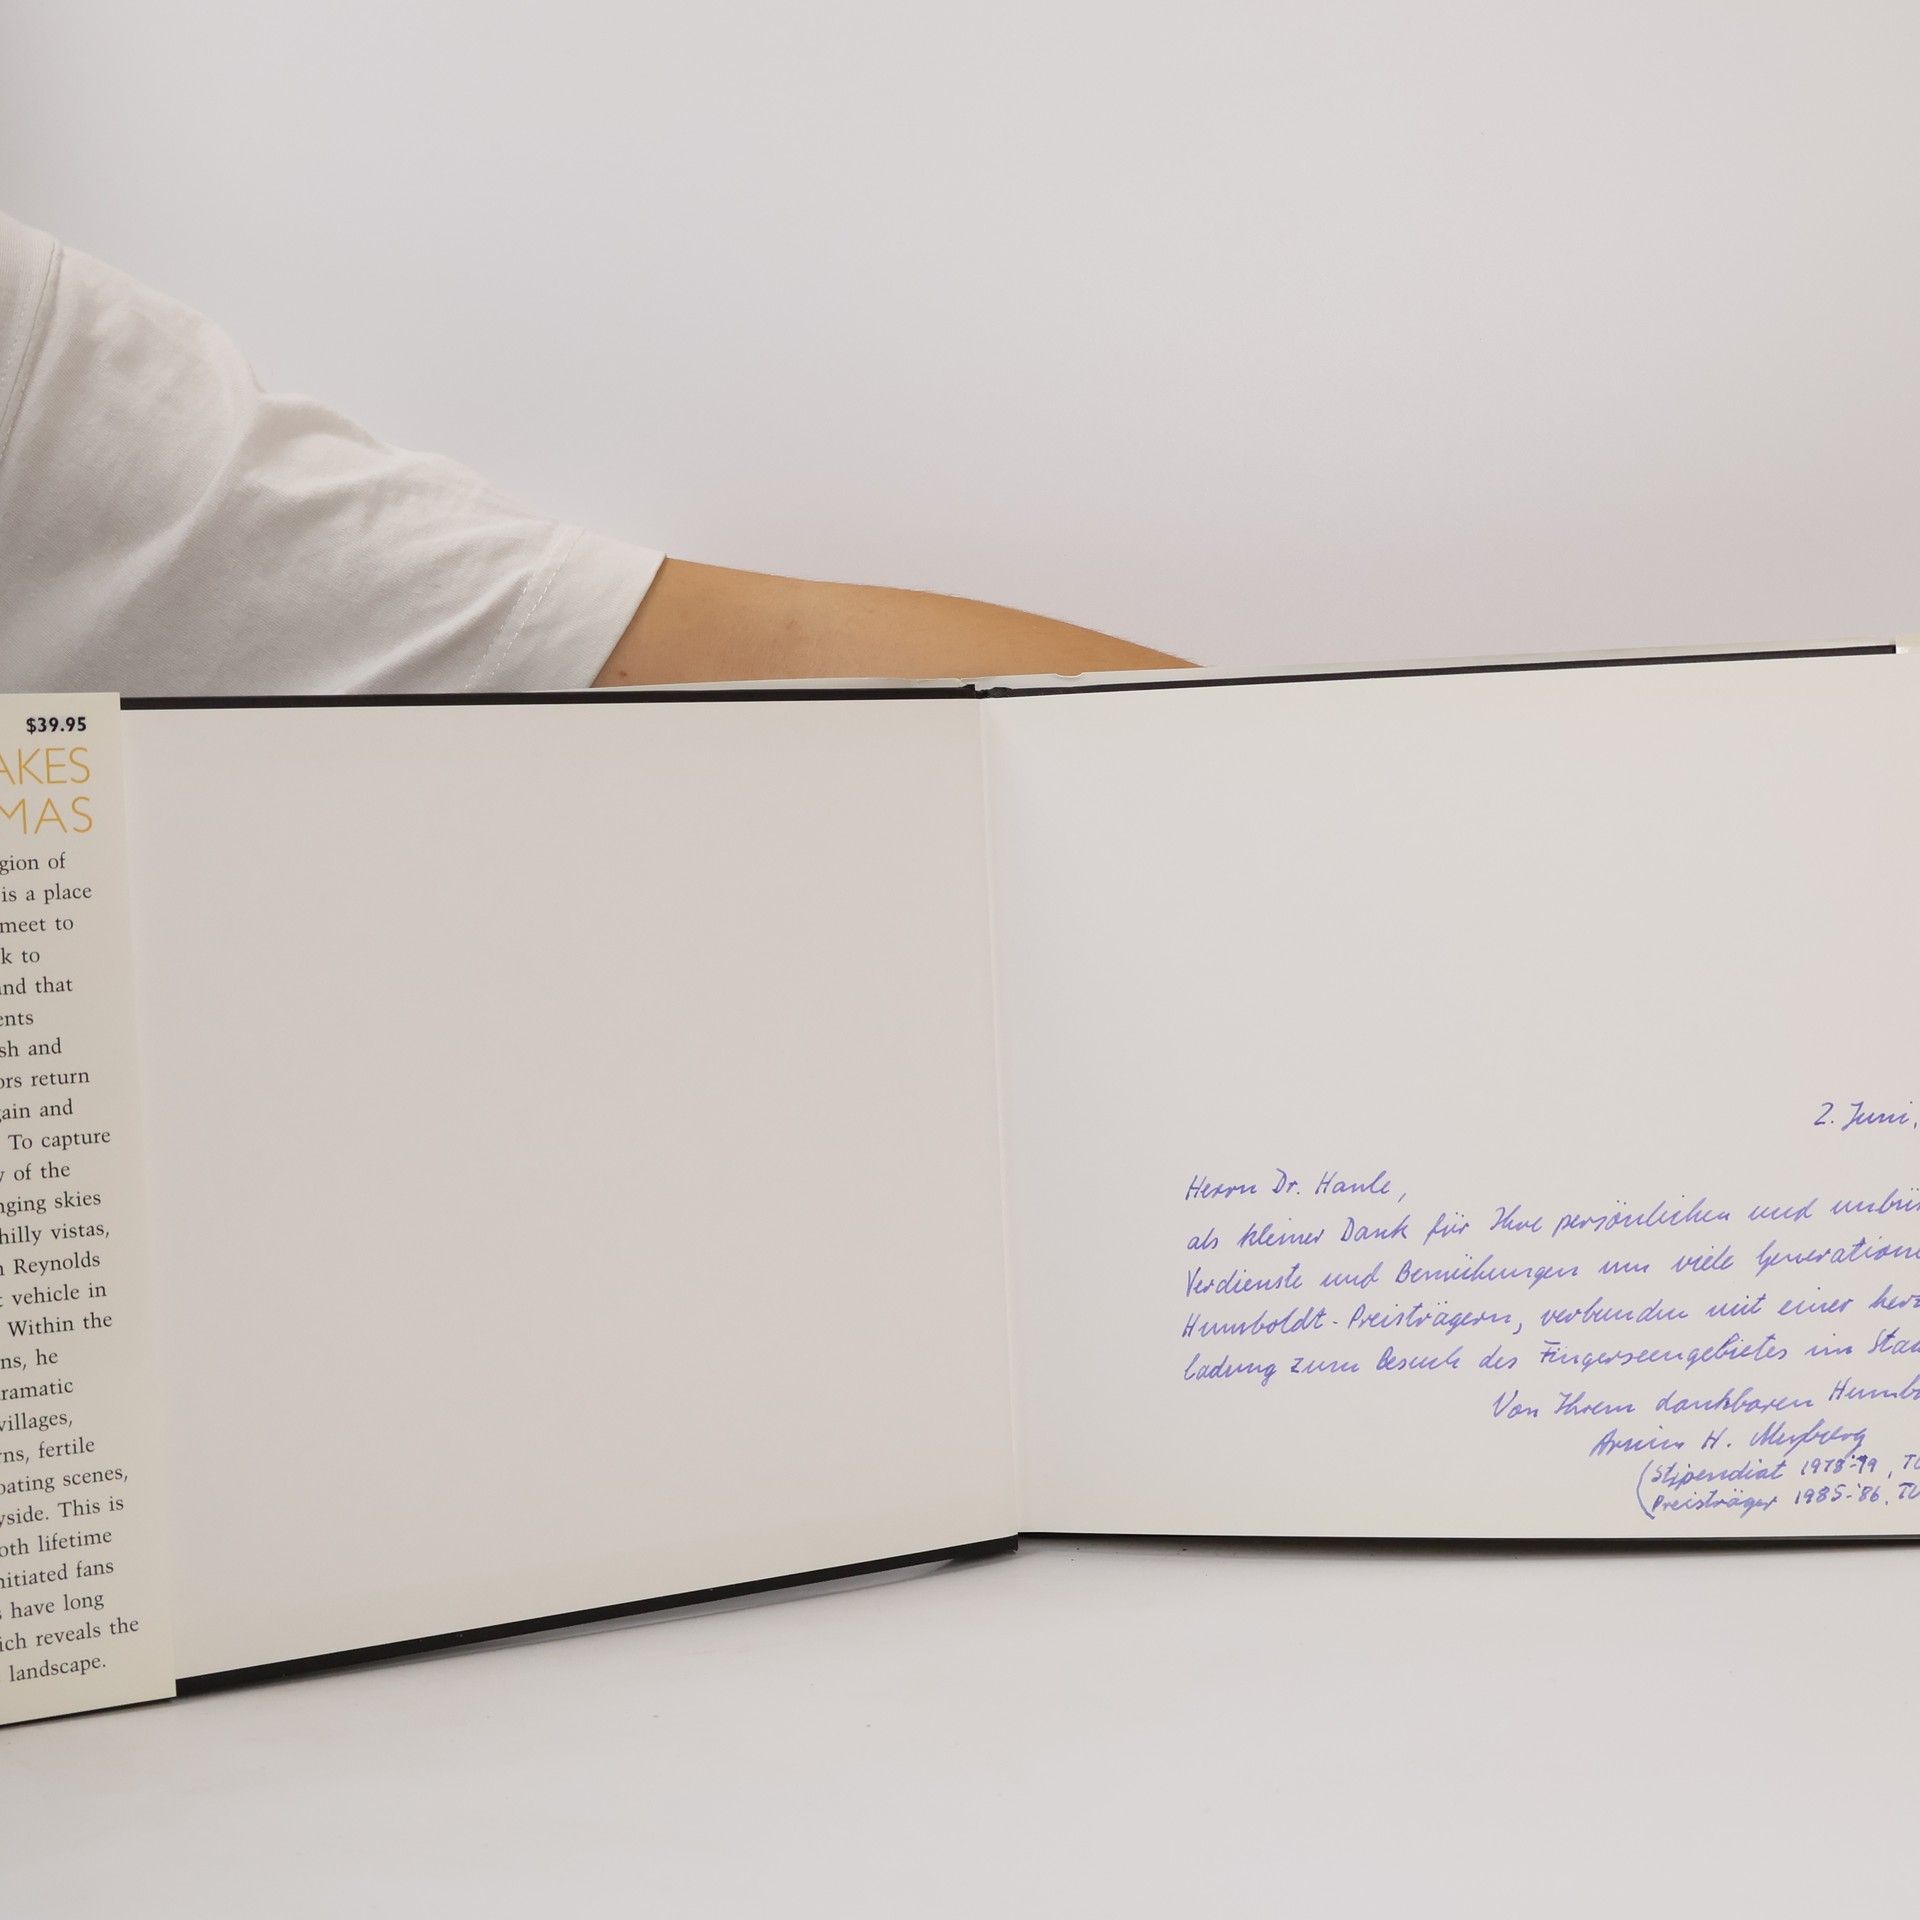 $39.95
AKES
MAS
gion of
is a place
meet to
k to
and that
ents
sh and
ors return
gain and
To capture
y of the
nging skies
hilly vistas,
n Reynolds
t vehicle in
Within the
ns, he
dramatic
villages,
rns, fertile
oating scenes,
yside. This is
oth lifetime
nitiated fans
s have long
ich reveals the
landscape.
2. Juni,
Herrn Dr. Hanle,
als kleiner Dank für Ihre persönlichen und unbür
Verdienste und Bemühungen um viele Generatione
Humboldt-Preisträgern, verbunden mit einer herz
ladung zum Besuch des Fingerseengebietes im Staa
Von Ihrem dankbaren Humbo
Armin H.
(Stipendiat 1978-79, TU
Preisträger 1985-'86, TU